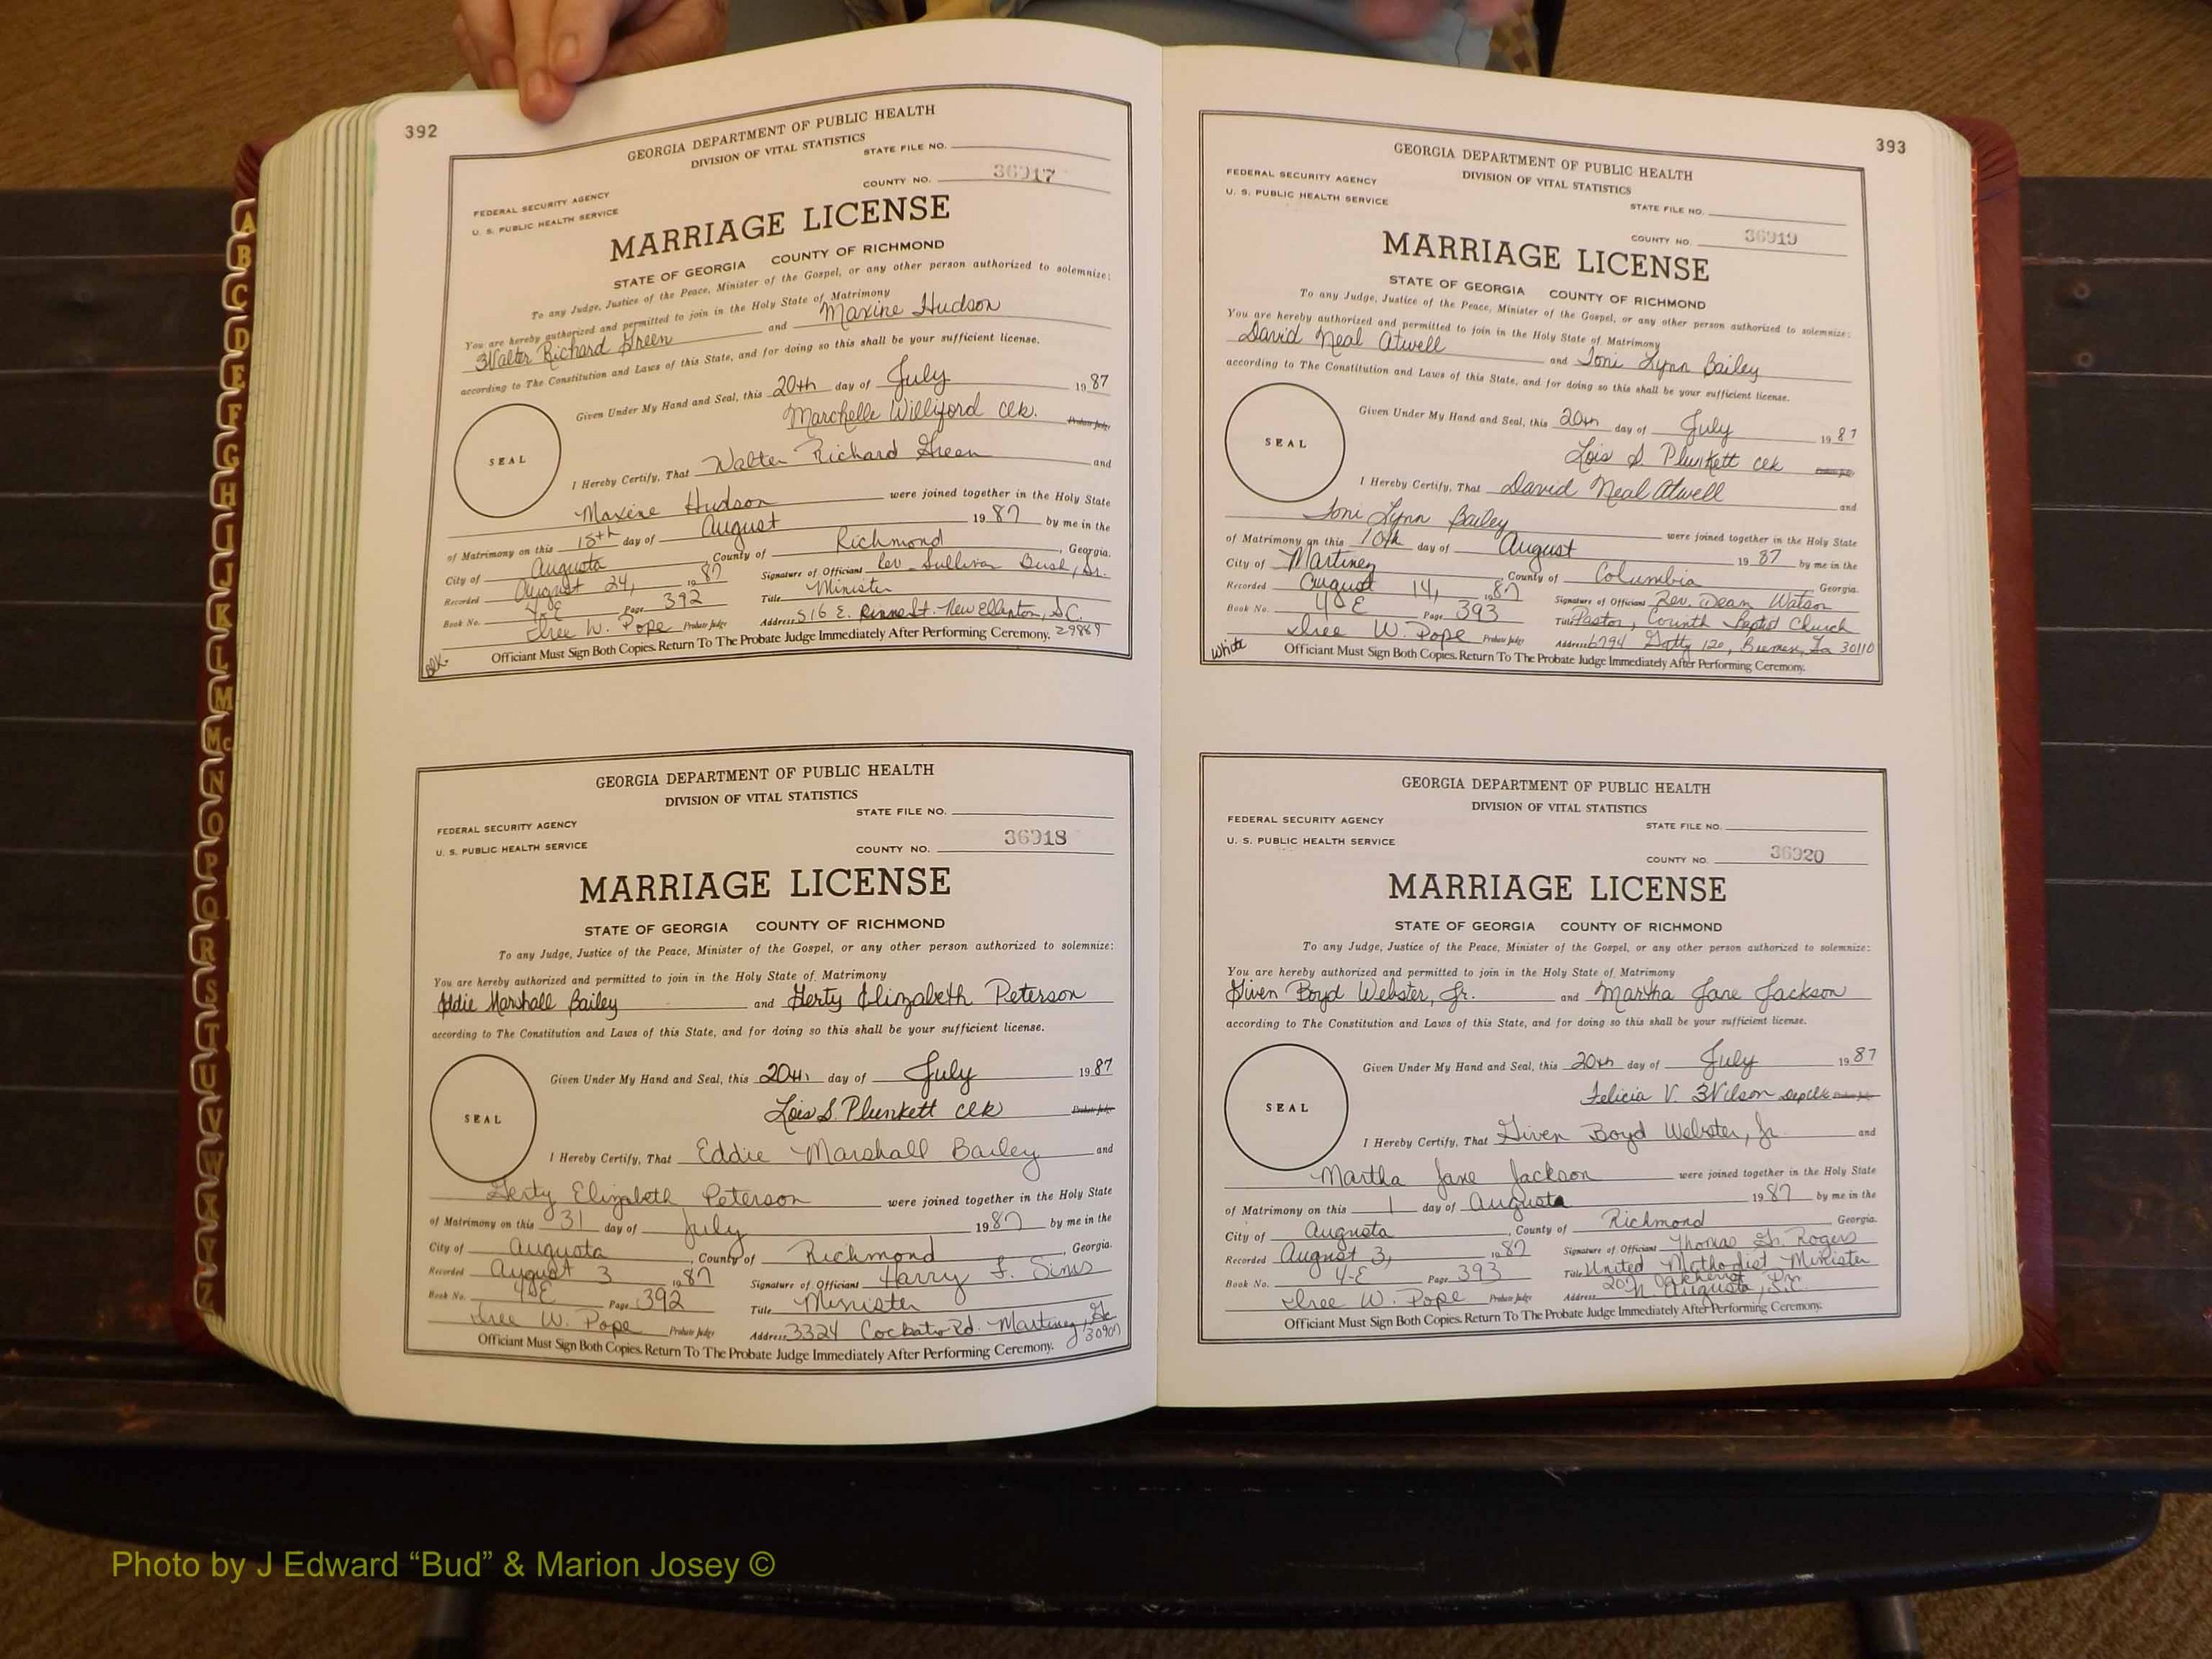 392
GEORGIA DEPARTMENT OF PUBLIC HEALTH
DIVISION OF VITAL STATISTICS
STATE FILE NO.
COUNTY NO. 36917
FEDERAL SECURITY AGENCY
U. S. PUBLIC HEALTH SERVICE
MARRIAGE LICENSE
STATE OF GEORGIA COUNTY OF RICHMOND
To any Judge, Justice of the Peace, Minister of the Gospel, or any other person authorized to solemnize:
You are hereby authorized and permitted to join in the Holy State of Matrimony
Walter Richard Green and Maxine Hudson
according to The Constitution and Laws of this State, and for doing so this shall be your sufficient license.
Given Under My Hand and Seal, this 20th day of July 1987
Marchelle Williford clk. Probate Judge
SEAL
I Hereby Certify, That Walter Richard Green and
Maxine Hudson were joined together in the Holy State
of Matrimony on this 15th day of August 1987 by me in the
City of Augusta County of Richmond, Georgia.
Recorded August 24, 1987 Signature of Officiant Rev Sullivan Bush, Sr.
Book No. 4-E Page 392 Title Minister
Iree W. Pope Probate Judge Address 516 E. St. New Ellenton, S.C.
Officiant Must Sign Both Copies. Return To The Probate Judge Immediately After Performing Ceremony. 29809
Blk.
GEORGIA DEPARTMENT OF PUBLIC HEALTH
DIVISION OF VITAL STATISTICS
STATE FILE NO.
FEDERAL SECURITY AGENCY
U. S. PUBLIC HEALTH SERVICE
COUNTY NO. 36918
MARRIAGE LICENSE
STATE OF GEORGIA COUNTY OF RICHMOND
To any Judge, Justice of the Peace, Minister of the Gospel, or any other person authorized to solemnize:
You are hereby authorized and permitted to join in the Holy State of Matrimony
Eddie Marshall Bailey and Gerty Elizabeth Peterson
according to The Constitution and Laws of this State, and for doing so this shall be your sufficient license.
Given Under My Hand and Seal, this 20th day of July 1987
Lois S. Plunkett clk Probate Judge
SEAL
I Hereby Certify, That Eddie Marshall Bailey and
Gerty Elizabeth Peterson were joined together in the Holy State
of Matrimony on this 31 day of July 1987 by me in the
City of Augusta, County of Richmond, Georgia.
Recorded August 3 1987 Signature of Officiant Harry F. Sims
Book No. 4-E Page 392 Title Minister
Iree W. Pope Probate Judge Address 3324 Rd. Martinez, Ga
Officiant Must Sign Both Copies. Return To The Probate Judge Immediately After Performing Ceremony. 30907
393
GEORGIA DEPARTMENT OF PUBLIC HEALTH
DIVISION OF VITAL STATISTICS
FEDERAL SECURITY AGENCY
U. S. PUBLIC HEALTH SERVICE
STATE FILE NO.
COUNTY NO. 36919
MARRIAGE LICENSE
STATE OF GEORGIA COUNTY OF RICHMOND
To any Judge, Justice of the Peace, Minister of the Gospel, or any other person authorized to solemnize:
You are hereby authorized and permitted to join in the Holy State of Matrimony
David Neal Atwell and Toni Lynn Bailey
according to The Constitution and Laws of this State, and for doing so this shall be your sufficient license.
Given Under My Hand and Seal, this 20th day of July 1987
Lois S. Plunkett clk
SEAL
I Hereby Certify, That David Neal Atwell and
Toni Lynn Bailey were joined together in the Holy State
of Matrimony on this 10th day of August 1987 by me in the
City of Martinez, County of Columbia Georgia.
Recorded August 14, 1987 Signature of Officiant Rev. Dean Watson
Book No. 4-E Page 393 Title Pastor, Corinth Baptist Church
Iree W. Pope Probate Judge Address 6794 120, Bremen, Ga 30110
Officiant Must Sign Both Copies. Return To The Probate Judge Immediately After Performing Ceremony.
White
GEORGIA DEPARTMENT OF PUBLIC HEALTH
DIVISION OF VITAL STATISTICS
FEDERAL SECURITY AGENCY
U. S. PUBLIC HEALTH SERVICE
STATE FILE NO.
COUNTY NO. 36920
MARRIAGE LICENSE
STATE OF GEORGIA COUNTY OF RICHMOND
To any Judge, Justice of the Peace, Minister of the Gospel, or any other person authorized to solemnize:
You are hereby authorized and permitted to join in the Holy State of Matrimony
Given Boyd Webster, Jr. and Martha Jane Jackson
according to The Constitution and Laws of this State, and for doing so this shall be your sufficient license.
Given Under My Hand and Seal, this 20th day of July 1987
Felicia V. Wilson Dep Clk Probate Judge
SEAL
I Hereby Certify, That Given Boyd Webster, Jr. and
Martha Jane Jackson were joined together in the Holy State
of Matrimony on this 1 day of Augusta 1987 by me in the
City of Augusta, County of Richmond Georgia.
Recorded August 3, 1987 Signature of Officiant Thomas H. Rogers
Book No. 4-E Page 393 Title United Methodist Minister
Iree W. Pope Probate Judge Address 207 Oakhurst Dr. N. Augusta, S.C.
Officiant Must Sign Both Copies. Return To The Probate Judge Immediately After Performing Ceremony.
A
B
C
D
E
F
G
H
I
J
K
L
M
Mc
N
O
P
Q
R
S
T
U
V
W
X
Y
Z
Photo by J Edward “Bud” & Marion Josey ©